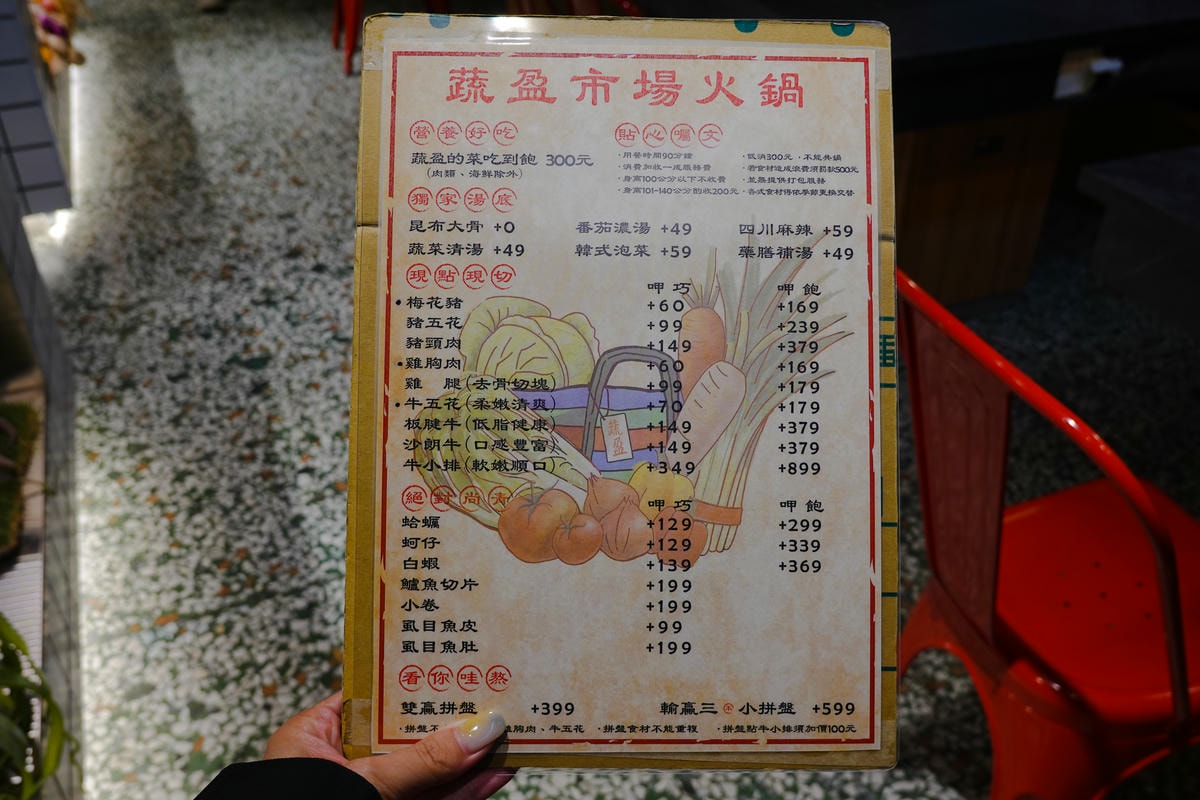 蔬盈市場火鍋
營養好吃
蔬盈的菜吃到飽 300元
(肉類、海鮮除外)
貼心囑文
·用餐時間90分鐘
·消費加收一成服務費
·身高100公分以下不收費
·身高101-140公分酌收200元
·低消300元，不能共鍋
·若食材造成浪費須罰款500元
·並無提供打包服務
·各式食材得依季節更換交替
獨家湯底
昆布大骨 +0 番茄濃湯 +49 四川麻辣 +59
蔬菜清湯 +49 韓式泡菜 +59 藥膳補湯 +49
現點現切
呷巧 呷飽
·梅花豬 +60 +169
豬五花 +99 +239
豬頸肉 +149 +379
·雞胸肉 +60 +169
雞 腿(去骨切塊) +99 +179
·牛五花(柔嫩清爽) +70 +179
板腱牛(低脂健康) +149 +379
沙朗牛(口感豐富) +149 +379
牛小排(軟嫩順口) +349 +899
蔬盈
絕對尚青
呷巧 呷飽
蛤蠣 +129 +299
蚵仔 +129 +339
白蝦 +139 +369
鱸魚切片 +199
小卷 +199
虱目魚皮 +99
虱目魚肚 +199
看你哇熬
雙贏拼盤 +399 輸贏三 小拼盤 +599
·拼盤不 雞胸肉、牛五花 ·拼盤食材不能重複 ·拼盤點牛小排須加價100元